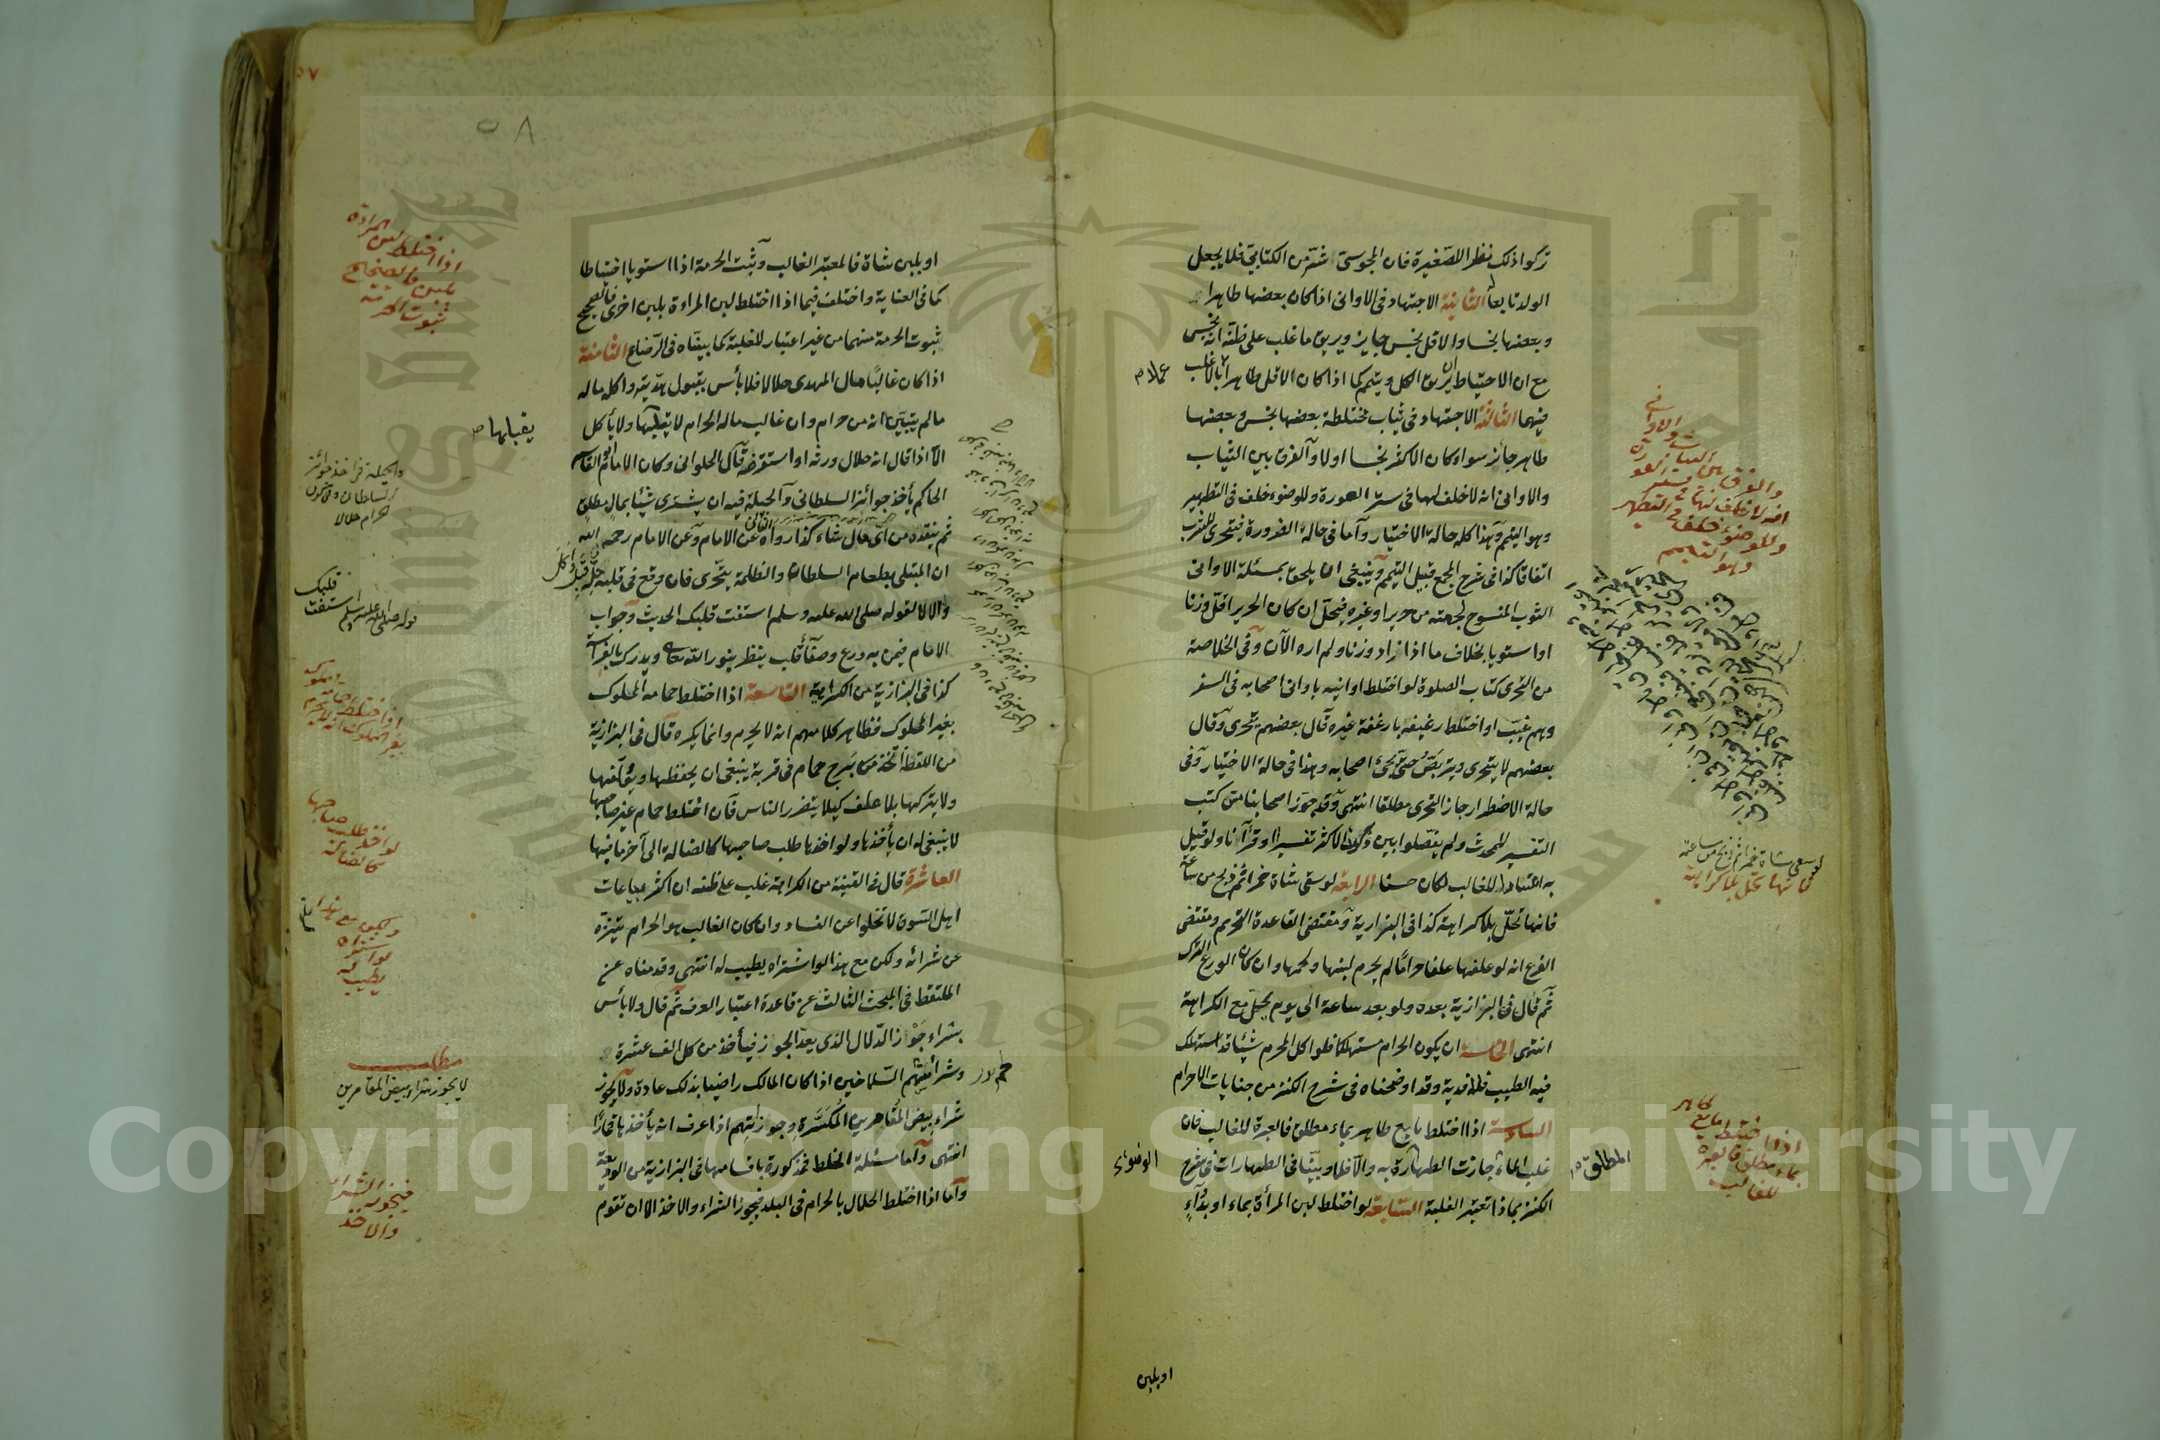 تركوا ذلك نظرا للصغيرة فان المجوسي اشر من الكتابي فلا يجعل
الولد تابعا الثانية الاجتهاد في الاواني اذا كان بعضها طاهرا
وبعضها نجسا والاقل نجس جايز ويريق ما غلب على ظنه انه نجس
مع ان الاحتياط ان يريق الكل ويتيمم كما اذا كان الاقل طاهرا عملا بالاغلب
فيهما الثالثة الاجتهاد في ثياب مختلطة بعضها نجس وبعضها
طاهر جائز سواء كان الاكثر نجسا اولا والفرق بين الثياب
والاواني انه لا خلف لها في ستر العورة وللوضوء خلف في التطهير
وهو التيمم وهذا كله حالة الاختيار وأما في حالة الضرورة فيتحرى للشرب
اتفاقا كذا في شرح المجمع قبيل التيمم وينبغي ان يلحق بمسئلة الاواني
الثوب المنسوج لحمته من حرير وغيره فيحل ان كان الحرير اقل وزنا
او استويا بخلاف ما اذا زاد وزنا ولم اره الآن وفي الخلاصة
من التحرى كتاب الصلوة لو اختلط اوانيه باوانى اصحابه في السفر
وهم غيب او اختلط رغيفه بارغفة غيره قال بعضهم يتحرى وقال
بعضهم لا يتحرى ويتربص حتى يجئ اصحابه وهذا في حالة الاختيار وفي
حالة الاضطرار جاز التحرى مطلقا انتهى وقد جوز اصحابنا مس كتب
التفسير للمحدث ولم يفصلوا بين كون الاكثر تفسيرا او قرآنا ولو قيل
به اعتبارا للغالب لكان حسنا الرابعة لو سقى شاة خمرا ثم ذبح من ساعته
فانها تحل بلا كراهة كذا في البزازية ومقتضى القاعدة التحريم ومقتضى
الفرع انه لو علفها علفا حراما لم يحرم لبنها ولحمها وان كان الورع الترك
ثم قال في البزازية بعده ولو بعد ساعة الى يوم يحل مع الكراهة
انتهى الخامسة ان يكون الحرام مستهلكا فلو اكل المحرم شيئا قد استهلك
فيه الطيب فلا فدية وقد اوضحناه في شرح الكنز من جنايات الاحرام
السادسة اذا اختلط مايع طاهر بماء مطلق فالعبرة للغالب فان
غلب الماء جازت الطهارة به والا فلا وبينا في الطهارات في شرح
الكنز بماذا تعتبر الغلبة السابعة لو اختلط لبن المرأة بماء او بدواء
او بلبن
عملا م
والفرق بين الثياب والاواني
انه لا خلف لها في ستر العورة
وللوضوء خلف في التطهير
وهو التيمم
لو سقى شاة خمرا ثم ذبح من ساعته
فانها تحل بلا كراهة
اذا اختلط مايع طاهر
بماء مطلق فالعبرة
للغالب
المطلق
الوضوء
٥٧
٥٨
او بلبن شاة فالمعتبر الغالب وتثبت الحرمة اذا استويا احتياطا
كما في الغاية واختلف فيما اذا اختلط لبن المراءة بلبن اخرى فالصحيح
ثبوت الحرمة منهما من غير اعتبار للغلبة كما بيناه في الرضاع الثامنة
اذا كان غالب مال المهدى حلالا فلا بأس بقبول هديته واكل ماله
مالم يتبين انه من حرام وان غالب ماله الحرام لا يقبلها ولا يأكل
الا اذا قال انه حلال ورثه او استقرضه قال الحلوانى وكان الامام ابو القاسم
الحاكم يأخذ جوائز السلطان والحيلة فيه ان يشترى شيئا بمال مطلق
ثم ينقده من اى مال شاء كذا رواه الثاني عن الامام وعن الامام رحمه الله
ان المبتلى بطعام السلطان والظلمة يتحرى فان وقع في قلبه حله قبل واكل
والا لا لقوله صلى الله عليه وسلم استفت قلبك الحديث وجواب
الامام فيمن به ورع وصفاء قلب ينظر بنور الله تعالى ويدرك بالفراسة
كذا في البزازية من الكراهية التاسعة اذا اختلط حمامه المملوك
بغير المملوك فظاهر كلامهم انه لا يحرم وانما يكره قال في البزازية
من اللقطة اتخذ برج حمام في قرية ينبغى ان يحفظها ويعلفها
ولا يتركها بلا علف كيلا يتضرر الناس فان اختلط حمام غير صاحبها
لا ينبغى له ان يأخذها ولو اخذها طلب صاحبها كالضالة الى آخر ما فيها
العاشرة قال في القنية من الكراهة غلب على ظنه ان اكثر بياعات
اهل السوق لا تخلوا عن الفساد وان كان الغالب هو الحرام يتنزه
عن شرائه ولكن مع هذا لو اشتراه يطيب له انتهى وقدمناه عن
الملتقط في المبحث الثالث عن قاعدة اعتبار العرف ثم قال ولا بأس
بشراء جوز الدلال الذى يعد الجوز فيأخذ من كل الف عشرة
وشراء لحم السلاخين اذا كان المالك راضيا بذلك عادة ولا يجوز
شراء بيض المقامرين المكسرة وجوزاتهم اذا عرف انه يأخذها قمارا
انتهى وأما مسئلة الخلط فمذكورة باقسامها في البزازية من الوديعة
وأما اذا اختلط الحلال بالحرام في البلد فيجوز الشراء والاخذ الا ان تقوم
اذا اختلط لبن المراءة
بلبن فالصحيح
ثبوت الحرمة
يقبلها ص
والحيلة في اخذ جوائز
السلطان
الحرام حلالا
قوله صلى الله عليه وسلم استفت قلبك
اذا اختلط حمامه المملوك
بغير المملوك انه لا يحرم
لو اخذ طلب صاحبها
كالضالة
ولكن مع هذا
لو اشتراه
يطيب له
مطلب
لا يجوز شراء بيض المقامرين
فيجوز الشراء
والاخذ
1957
Copyright © King Saud University